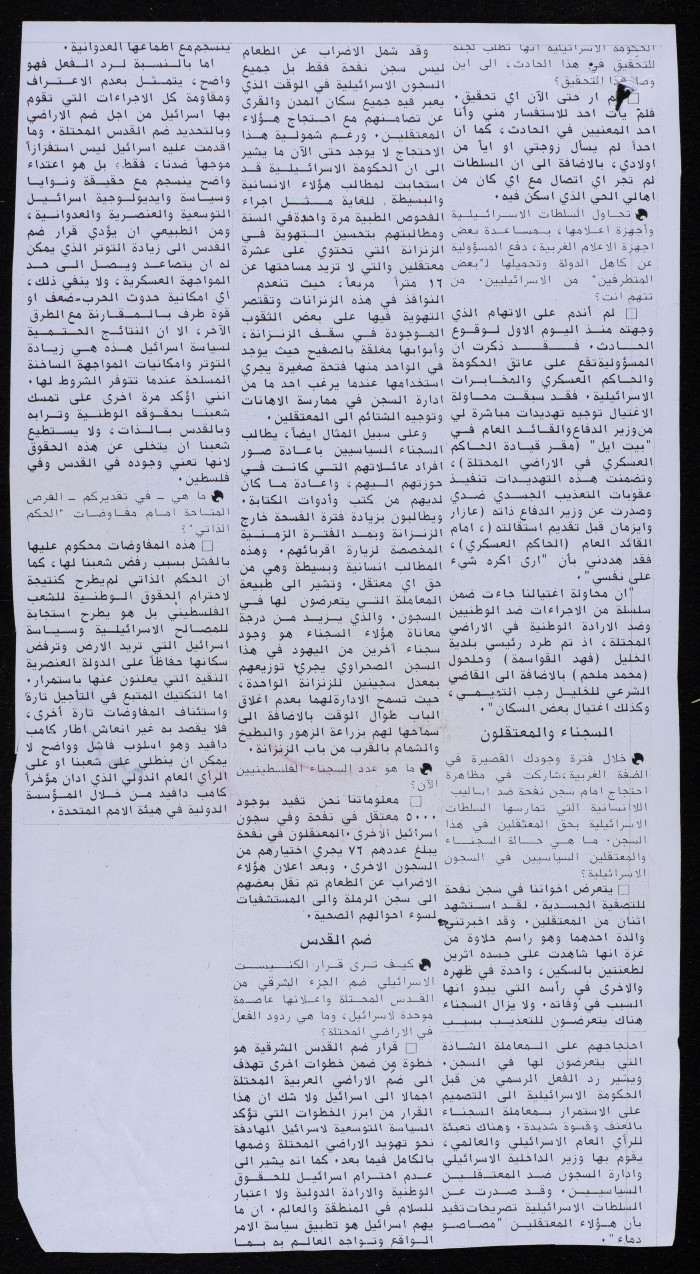 الحكومة الاسرائيلية انها تطلب لجنة
للتحقيق في هذا الحادث، الى اين
وصل هذا التحقيق؟
□ لم ار حتى الآن اي تحقيق.
فلم يأت احد للاستفسار مني وأنا
احد المعنيين في الحادث، كما ان
احداً لم يسأل زوجتي او اياً من
اولادي، بالاضافة الى ان السلطات
لم تجر اي اتصال مع اي كان من
اهالي الحي الذي اسكن فيه.
تحاول السلطات الاسرائيلية
وأجهزة اعلامها، بمساعدة بعض
اجهزة الاعلام الغربية، دفع المسؤولية
عن كاهل الدولة وتحميلها لـ"بعض
المتطرفين" من الاسرائيليين. من
تتهم انت؟
□ لم أندم على الاتهام الذي
وجهته منذ اليوم الاول لوقوع
الحادث. فقد ذكرت ان
المسؤولية تقع على عاتق الحكومة
والحاكم العسكري والمخابرات
الاسرائيلية. فقد سبقت محاولة
الاغتيال توجيه تهديدات مباشرة لي
من وزير الدفاع والقائد العام في
"بيت ايل" (مقر قيادة الحاكم
العسكري في الاراضي المحتلة)،
وتضمنت هذه التهديدات تنفيذ
عقوبات التعذيب الجسدي ضدي
وصدرت عن وزير الدفاع ذاته (عازار
وايزمان قبل تقديم استقالته (، امام
القائد العام (الحاكم العسكري)،
فقد هددني بأن "ارى اكره شيء
على نفسي".
"ان محاولة اغتيالنا جاءت ضمن
سلسلة من الاجراءات ضد الوطنيين
وضد الارادة الوطنية في الاراضي
المحتلة، اذ تم طرد رئيسي بلدية
الخليل (فهد القواسمة) وحلحول
(محمد ملحم) بالاضافة الى القاضي
الشرعي للخليل رجب التميمي،
وكذلك اغتيال بعض السكان".
السجناء والمعتقلون
خلال فترة وجودك القصيرة في
الضفة الغربية، شاركت في مظاهرة
احتجاج امام سجن نفحة ضد اساليب
اللاانسانية التي تمارسها السلطات
الاسرائيلية بحق المعتقلين في هذا
السجن. ما هي حالة السجناء
والمعتقلين السياسيين في السجون
الاسرائيلية؟
□ يتعرض اخواننا في سجن نفحة
للتصفية الجسدية. لقد استشهد
اثنان من المعتقلين. وقد اخبرتني
والدة احدهما وهو راسم حلاوة من
غزة انها شاهدت على جسده اثرين
لطعنتين بالسكين، واحدة في ظهره
والاخرى في رأسه التي يبدو انها
السبب في وفاته. ولا يزال السجناء
هناك يتعرضون للتعذيب بسبب
احتجاجهم على المعاملة الشاذة
التي يتعرضون لها في السجن.
ويشير رد الفعل الرسمي من قبل
الحكومة الاسرائيلية الى التصميم
على الاستمرار بمعاملة السجناء
بالعنف وقسوة شديدة. وهناك تعبئة
للرأي العام الاسرائيلي والعالمي،
يقوم بها وزير الداخلية الاسرائيلي
وادارة السجون ضد المعتقلين
السياسيين. وقد صدرت عن
السلطات الاسرائيلية تصريحات تفيد
بأن هؤلاء المعتقلين "مصاصو
دماء".
وقد شمل الاضراب عن الطعام
ليس سجن نفحة فقط بل جميع
السجون الاسرائيلية في الوقت الذي
يعبر فيه جميع سكان المدن والقرى
عن تضامنهم مع احتجاج هؤلاء
المعتقلين. ورغم شمولية هذا
الاحتجاج لا يوجد حتى الآن ما يشير
الى ان الحكومة الاسرائيلية قد
استجابت لمطالب هؤلاء الانسانية
والبسيطة، للغاية مثل اجراء
الفحوص الطبية مرة واحدة في السنة
ومطالبتهم بتحسين التهوية في
الزنزانة التي تحتوي على عشرة
معتقلين والتي لا تزيد مساحتها عن
١٦ متراً مربعاً، حيث تنعدم
النوافذ في هذه الزنزانات وتقتصر
التهوية فيها على بعض الثقوب
الموجودة في سقف الزنزانة،
وأبوابها مغلقة بالصفيح حيث يوجد
في الواحد منها فتحة صغيرة يجري
استخدامها عندما يرغب احد ما من
ادارة السجن في ممارسة الاهانات
وتوجيه الشتائم الى المعتقلين.
وعلى سبيل المثال ايضاً، يطالب
السجناء السياسيين باعادة صور
افراد عائلاتهم التي كانت في
حوزتهم اليهم، واعادة ما كان
لديهم من كتب وأدوات الكتابة.
ويطالبون بزيادة فترة الفسحة خارج
الزنزانة وبمد الفترة الزمنية
المخصصة لزيارة اقربائهم. وهذه
المطالب انسانية وبسيطة وهي من
حق اي معتقل. وتشير الى طبيعة
المعاملة التي يتعرضون لها في
السجون. والذي يزيد من درجة
معاناة هؤلاء السجناء هو وجود
سجناء آخرين من اليهود في هذا
السجن الصحراوي يجري توزيعهم
بمعدل سجينين للزنزانة الواحدة،
حيث تسمح الادارة لهما بعدم اغلاق
الباب طوال الوقت بالاضافة الى
سماحها لهم بزراعة الزهور والبطيخ
والشمام بالقرب من باب الزنزانة.
ما هو عدد السجناء الفلسطينيين
الآن؟
□ معلوماتنا نحن تفيد بوجود
٥٠٠٠ معتقل في نفحة وفي سجون
اسرائيل الاخرى. المعتقلون في نفحة
يبلغ عددهم ٧٦ يجري اختيارهم من
السجون الاخرى. وبعد اعلان هؤلاء
الاضراب عن الطعام تم نقل بعضهم
الى سجن الرملة والى المستشفيات
لسوء احوالهم الصحية.
ضم القدس
كيف ترى قرار الكنيست
الاسرائيلي ضم الجزء الشرقي من
القدس المحتلة واعلانها عاصمة
موحدة لاسرائيل، وما هي ردود الفعل
في الاراضي المحتلة؟
□ قرار ضم القدس الشرقية هو
خطوة من ضمن خطوات اخرى تهدف
الى ضم الاراضي العربية المحتلة
اجمالا الى اسرائيل ولا شك ان هذا
القرار من ابرز الخطوات التي تؤكد
السياسة التوسعية لاسرائيل الهادفة
نحو تهويد الاراضي المحتلة وضمها
بالكامل فيما بعد. كما انه يشير الى
عدم احترام اسرائيل للحقوق
الوطنية والارادة الدولية ولا اعتبار
للسلام في المنطقة والعالم. ان ما
يهم اسرائيل هو تطبيق سياسة الامر
الواقع وتواجه العالم به بما
ينسجم مع اطماعها العدوانية.
اما بالنسبة لرد الفعل فهو
واضح، يتمثل بعدم الاعتراف
ومقاومة كل الاجراءات التي تقوم
بها اسرائيل من اجل ضم الاراضي
وبالتحديد ضم القدس المحتلة. وما
اقدمت عليه اسرائيل ليس استفزازاً
موجهاً ضدنا، فقط، بل هو اعتداء
واضح ينسجم مع حقيقة ونوايا
وسياسة وايديولوجية اسرائيل
التوسعية والعنصرية والعدوانية،
ومن الطبيعي ان يؤدي قرار ضم
القدس الى زيادة التوتر الذي يمكن
له ان يتصاعد ويصل الى حد
المواجهة العسكرية، ولا ينفي ذلك،
اي امكانية حدوث الحرب. ضعف او
قوة طرف بالمقارنة مع الطرق
الآخر، الا ان النتائج الحتمية
لسياسة اسرائيل هذه هي زيادة
التوتر وامكانيات المواجهة الساخنة
المسلحة عندما تتوفر الشروط لها.
انني اؤكد مرة اخرى على تمسك
شعبنا بحقوقه الوطنية وترابه
وبالقدس بالذات، ولا يستطيع
شعبنا ان يتخلى عن هذه الحقوق
لانها تعني وجوده في القدس وفي
فلسطين.
ما هي ــ في تقديركم ــ الفرص
المتاحة امام مفاوضات "الحكم
الذاتي"؟
□ هذه المفاوضات محكوم عليها
بالفشل بسبب رفض شعبنا لها، كما
ان الحكم الذاتي لم يطرح كنتيجة
لاحترام الحقوق الوطنية للشعب
الفلسطيني بل هو يطرح استجابة
للمصالح الاسرائيلية وسياسة
اسرائيل التي تريد الارض وترفض
سكانها حفاظاً على الدولة العنصرية
النقية التي يعلنون عنها باستمرار.
اما التكتيك المتبع في التأجيل تارة
واستئناف المفاوضات تارة أخرى،
فلا يقصد به غير انعاش اطار كامب
دافيد وهو اسلوب فاشل وواضح لا
يمكن ان ينطلي على شعبنا او على
الرأي العام الدولي الذي ادان مؤخراً
كامب دافيد من خلال المؤسسة
الدولية في هيئة الامم المتحدة.